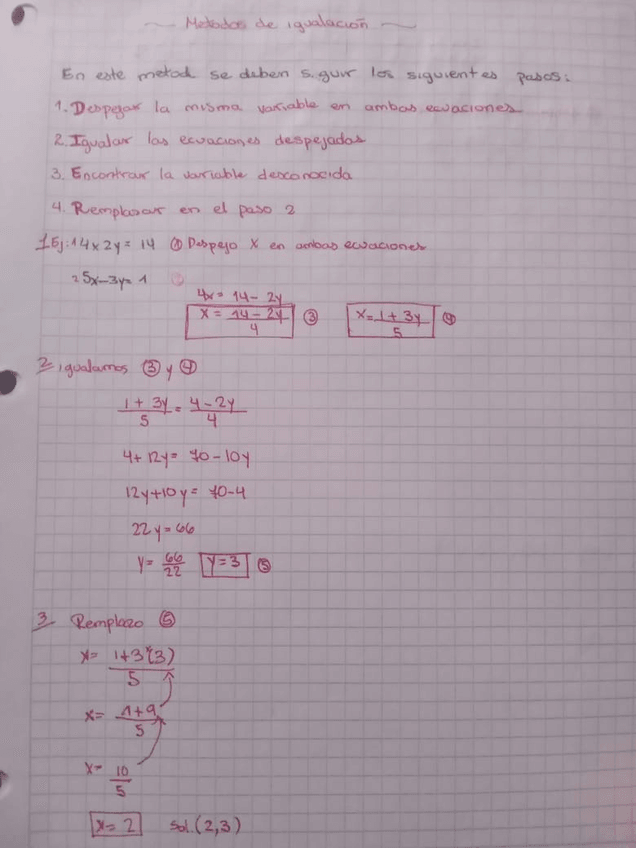 Metodos de igualación
En este metod se deben seguir los siguientes pasos:
1. Despejar la misma variable en ambas ecuaciones
2. Igualar las ecuaciones despejadas
3. Encontrar la variable desconocida
4. Remplasar en el paso 2
1 Ej: 1 4x 2y = 14 ① Despejo X en ambas ecuaciones
2 5x-3y= 1 ②
4x = 14 - 2y
x = 14 - 2y / 4 ③ x = 1 + 3y / 5 ④
2 igualamos ③ y ④
1 + 3y / 5 = 4 - 2y / 4
4 + 12y = 70 - 10y
12y + 10y = 70 - 4
22y = 66
y = 66 / 22 y = 3 ⑤
3 Remplazo ⑤
x = 1 + 3*(3) / 5
x = 1 + 9 / 5
x = 10 / 5
x = 2 Sol. (2,3)